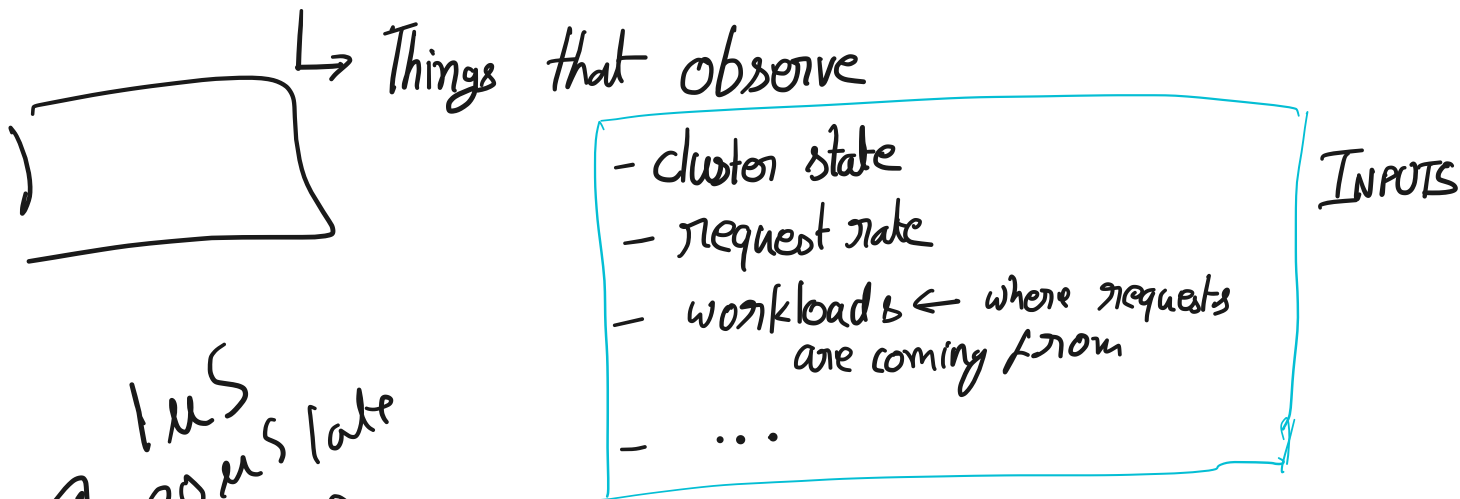 Things that observe
- cluster state
INPUTS
- request rate
- workloads ← where requests
are coming from
- ...
1us
us late